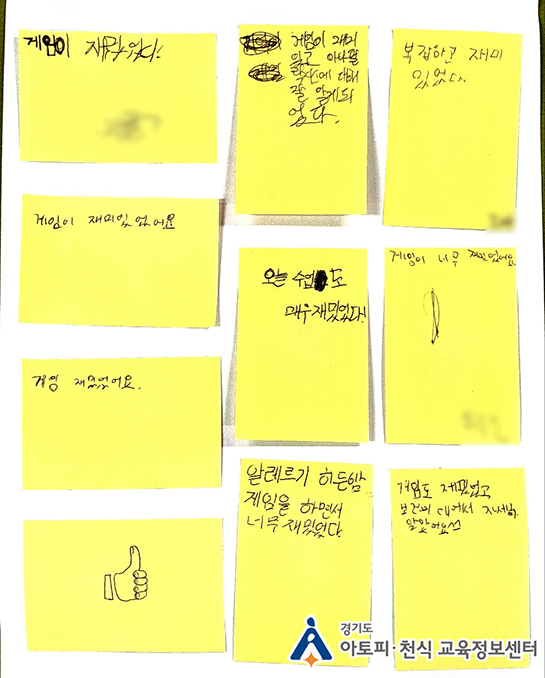 게임이 재밌었다!
게임이 재미
있고 아나필
락시에 대해
잘 알게되
었다.
복잡하고 재미
있었다.
게임이 재미있었어요
오늘 수업도
매우재밌었다!
게임이 너무 재밌었어요.
게임 재밌었어요.
알레르기 히든맵
게임을 하면서
너무 재밌었다.
게임도 재밌었고
보건의 대해서 자세히
알았어요
경기도
아토피·천식 교육정보센터